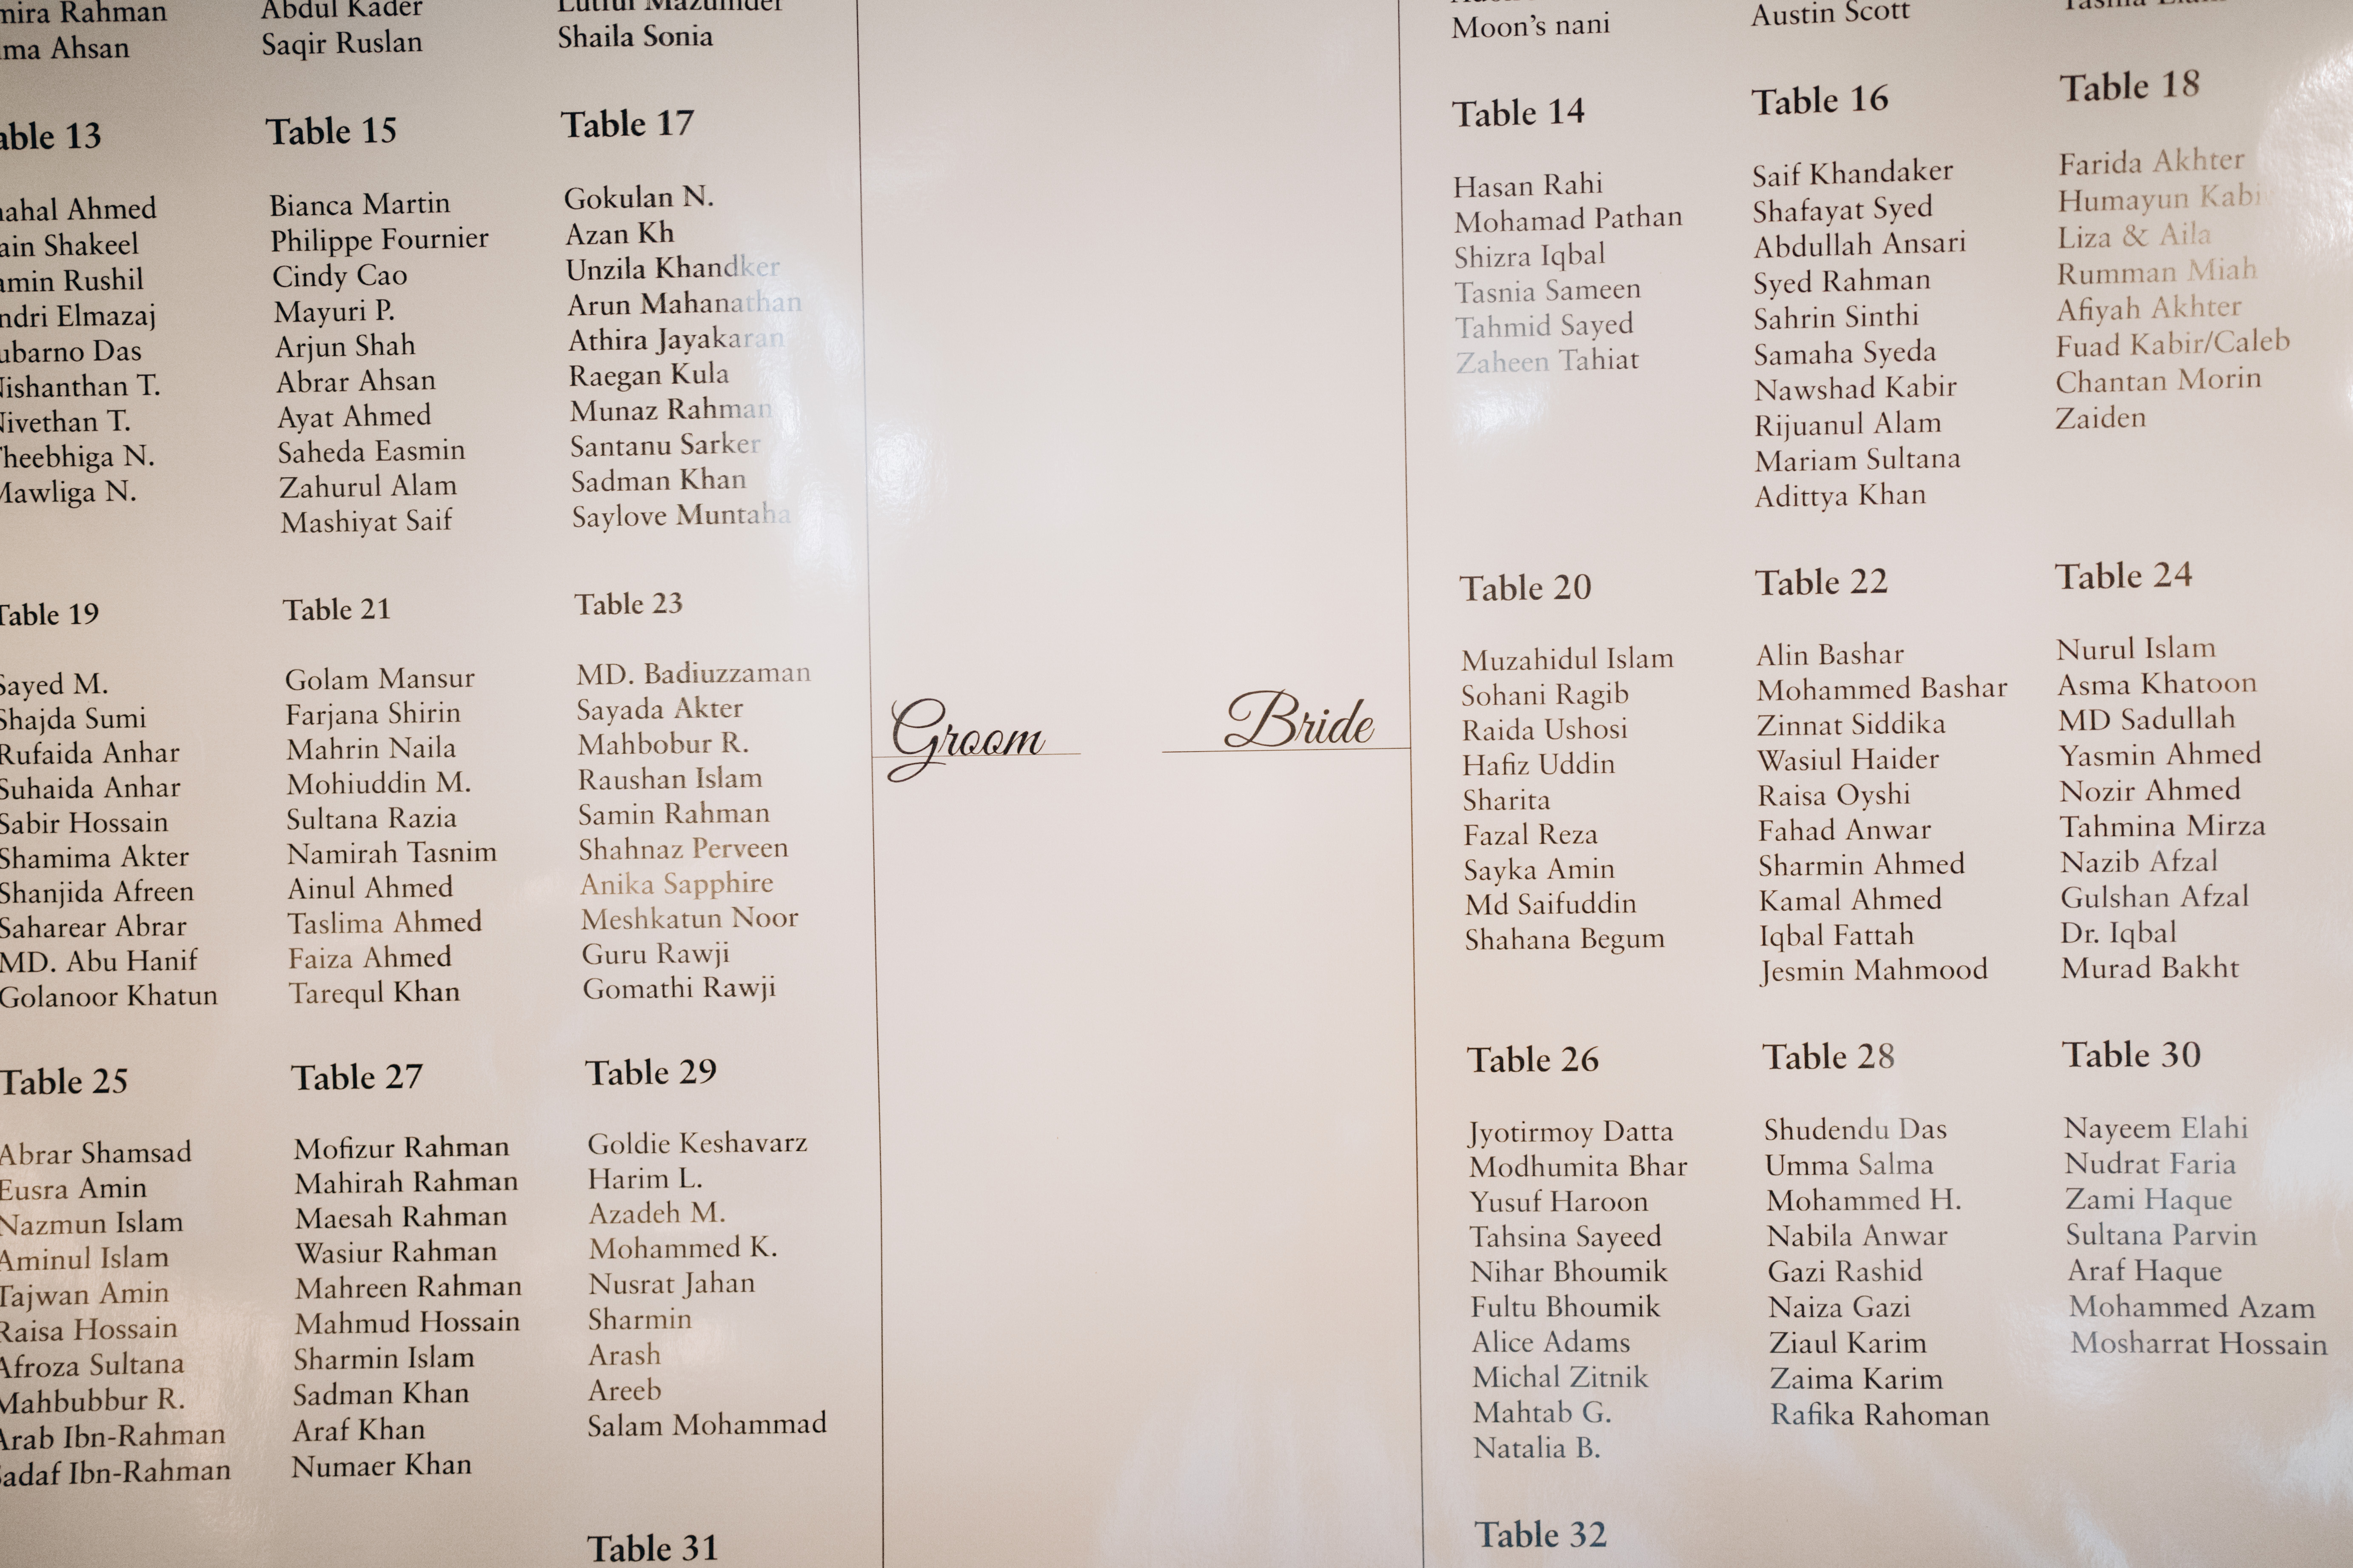 Rahman
Ahsan
Abdul Kader
Saqir Ruslan
Shaila Sonia
13
Ahmed
Shakeel
Rushil
Elmazaj
Das
T.
Nivethan T.
N.
Mawliga N.
Table 15
Bianca Martin
Philippe Fournier
Cindy Cao
Mayuri P.
Arjun Shah
Abrar Ahsan
Ayat Ahmed
Saheda Easmin
Zahurul Alam
Mashiyat Saif
Table 17
Gokulan N.
Azan Kh
Unzila Khandker
Arun Mahanathan
Athira Jayakaran
Raegan Kula
Munaz Rahman
Santanu Sarker
Sadman Khan
Saylove Muntaha
Table 19
Sayed M.
Shajda Sumi
Rufaida Anhar
Suhaida Anhar
Sabir Hossain
Shamima Akter
Shanjida Afreen
Saharear Abrar
MD. Abu Hanif
Golanoor Khatun
Table 21
Golam Mansur
Farjana Shirin
Mahrin Naila
Mohiuddin M.
Sultana Razia
Namirah Tasnim
Ainul Ahmed
Taslima Ahmed
Faiza Ahmed
Tarequl Khan
Table 23
MD. Badiuzzaman
Sayada Akter
Mahbobur R.
Raushan Islam
Samin Rahman
Shahnaz Perveen
Anika Sapphire
Meshkatun Noor
Guru Rawji
Gomathi Rawji
Table 25
Abrar Shamsad
Eusra Amin
Nazmun Islam
Aminul Islam
Tajwan Amin
Raisa Hossain
Afroza Sultana
Mahbubbur R.
Arab Ibn-Rahman
Ibn-Rahman
Table 27
Mofizur Rahman
Mahirah Rahman
Maesah Rahman
Wasiur Rahman
Mahreen Rahman
Mahmud Hossain
Sharmin Islam
Sadman Khan
Araf Khan
Numaer Khan
Table 29
Goldie Keshavarz
Harim L.
Azadeh M.
Mohammed K.
Nusrat Jahan
Sharmin
Arash
Areeb
Salam Mohammad
Table 31
Groom
Bride
Moon's nani
Austin Scott
Table 14
Hasan Rahi
Mohamad Pathan
Shizra Iqbal
Tasnia Sameen
Tahmid Sayed
Zaheen Tahiat
Table 16
Saif Khandaker
Shafayat Syed
Abdullah Ansari
Syed Rahman
Sahrin Sinthi
Samaha Syeda
Nawshad Kabir
Rijuanul Alam
Mariam Sultana
Adittya Khan
Table 18
Farida Akhter
Humayun Kabir
Liza & Aila
Rumman Miah
Afiyah Akhter
Fuad Kabir/Caleb
Chantan Morin
Zaiden
Table 20
Muzahidul Islam
Sohani Ragib
Raida Ushosi
Hafiz Uddin
Sharita
Fazal Reza
Sayka Amin
Md Saifuddin
Shahana Begum
Table 22
Alin Bashar
Mohammed Bashar
Zinnat Siddika
Wasiul Haider
Raisa Oyshi
Fahad Anwar
Sharmin Ahmed
Kamal Ahmed
Iqbal Fattah
Jesmin Mahmood
Table 24
Nurul Islam
Asma Khatoon
MD Sadullah
Yasmin Ahmed
Nozir Ahmed
Tahmina Mirza
Nazib Afzal
Gulshan Afzal
Dr. Iqbal
Murad Bakht
Table 26
Jyotirmoy Datta
Modhumita Bhar
Yusuf Haroon
Tahsina Sayeed
Nihar Bhoumik
Fultu Bhoumik
Alice Adams
Michal Zitnik
Mahtab G.
Natalia B.
Table 28
Shudendu Das
Umma Salma
Mohammed H.
Nabila Anwar
Gazi Rashid
Naiza Gazi
Ziaul Karim
Zaima Karim
Rafika Rahoman
Table 30
Nayeem Elahi
Nudrat Faria
Zami Haque
Sultana Parvin
Araf Haque
Mohammed Azam
Mosharrat Hossain
Table 32